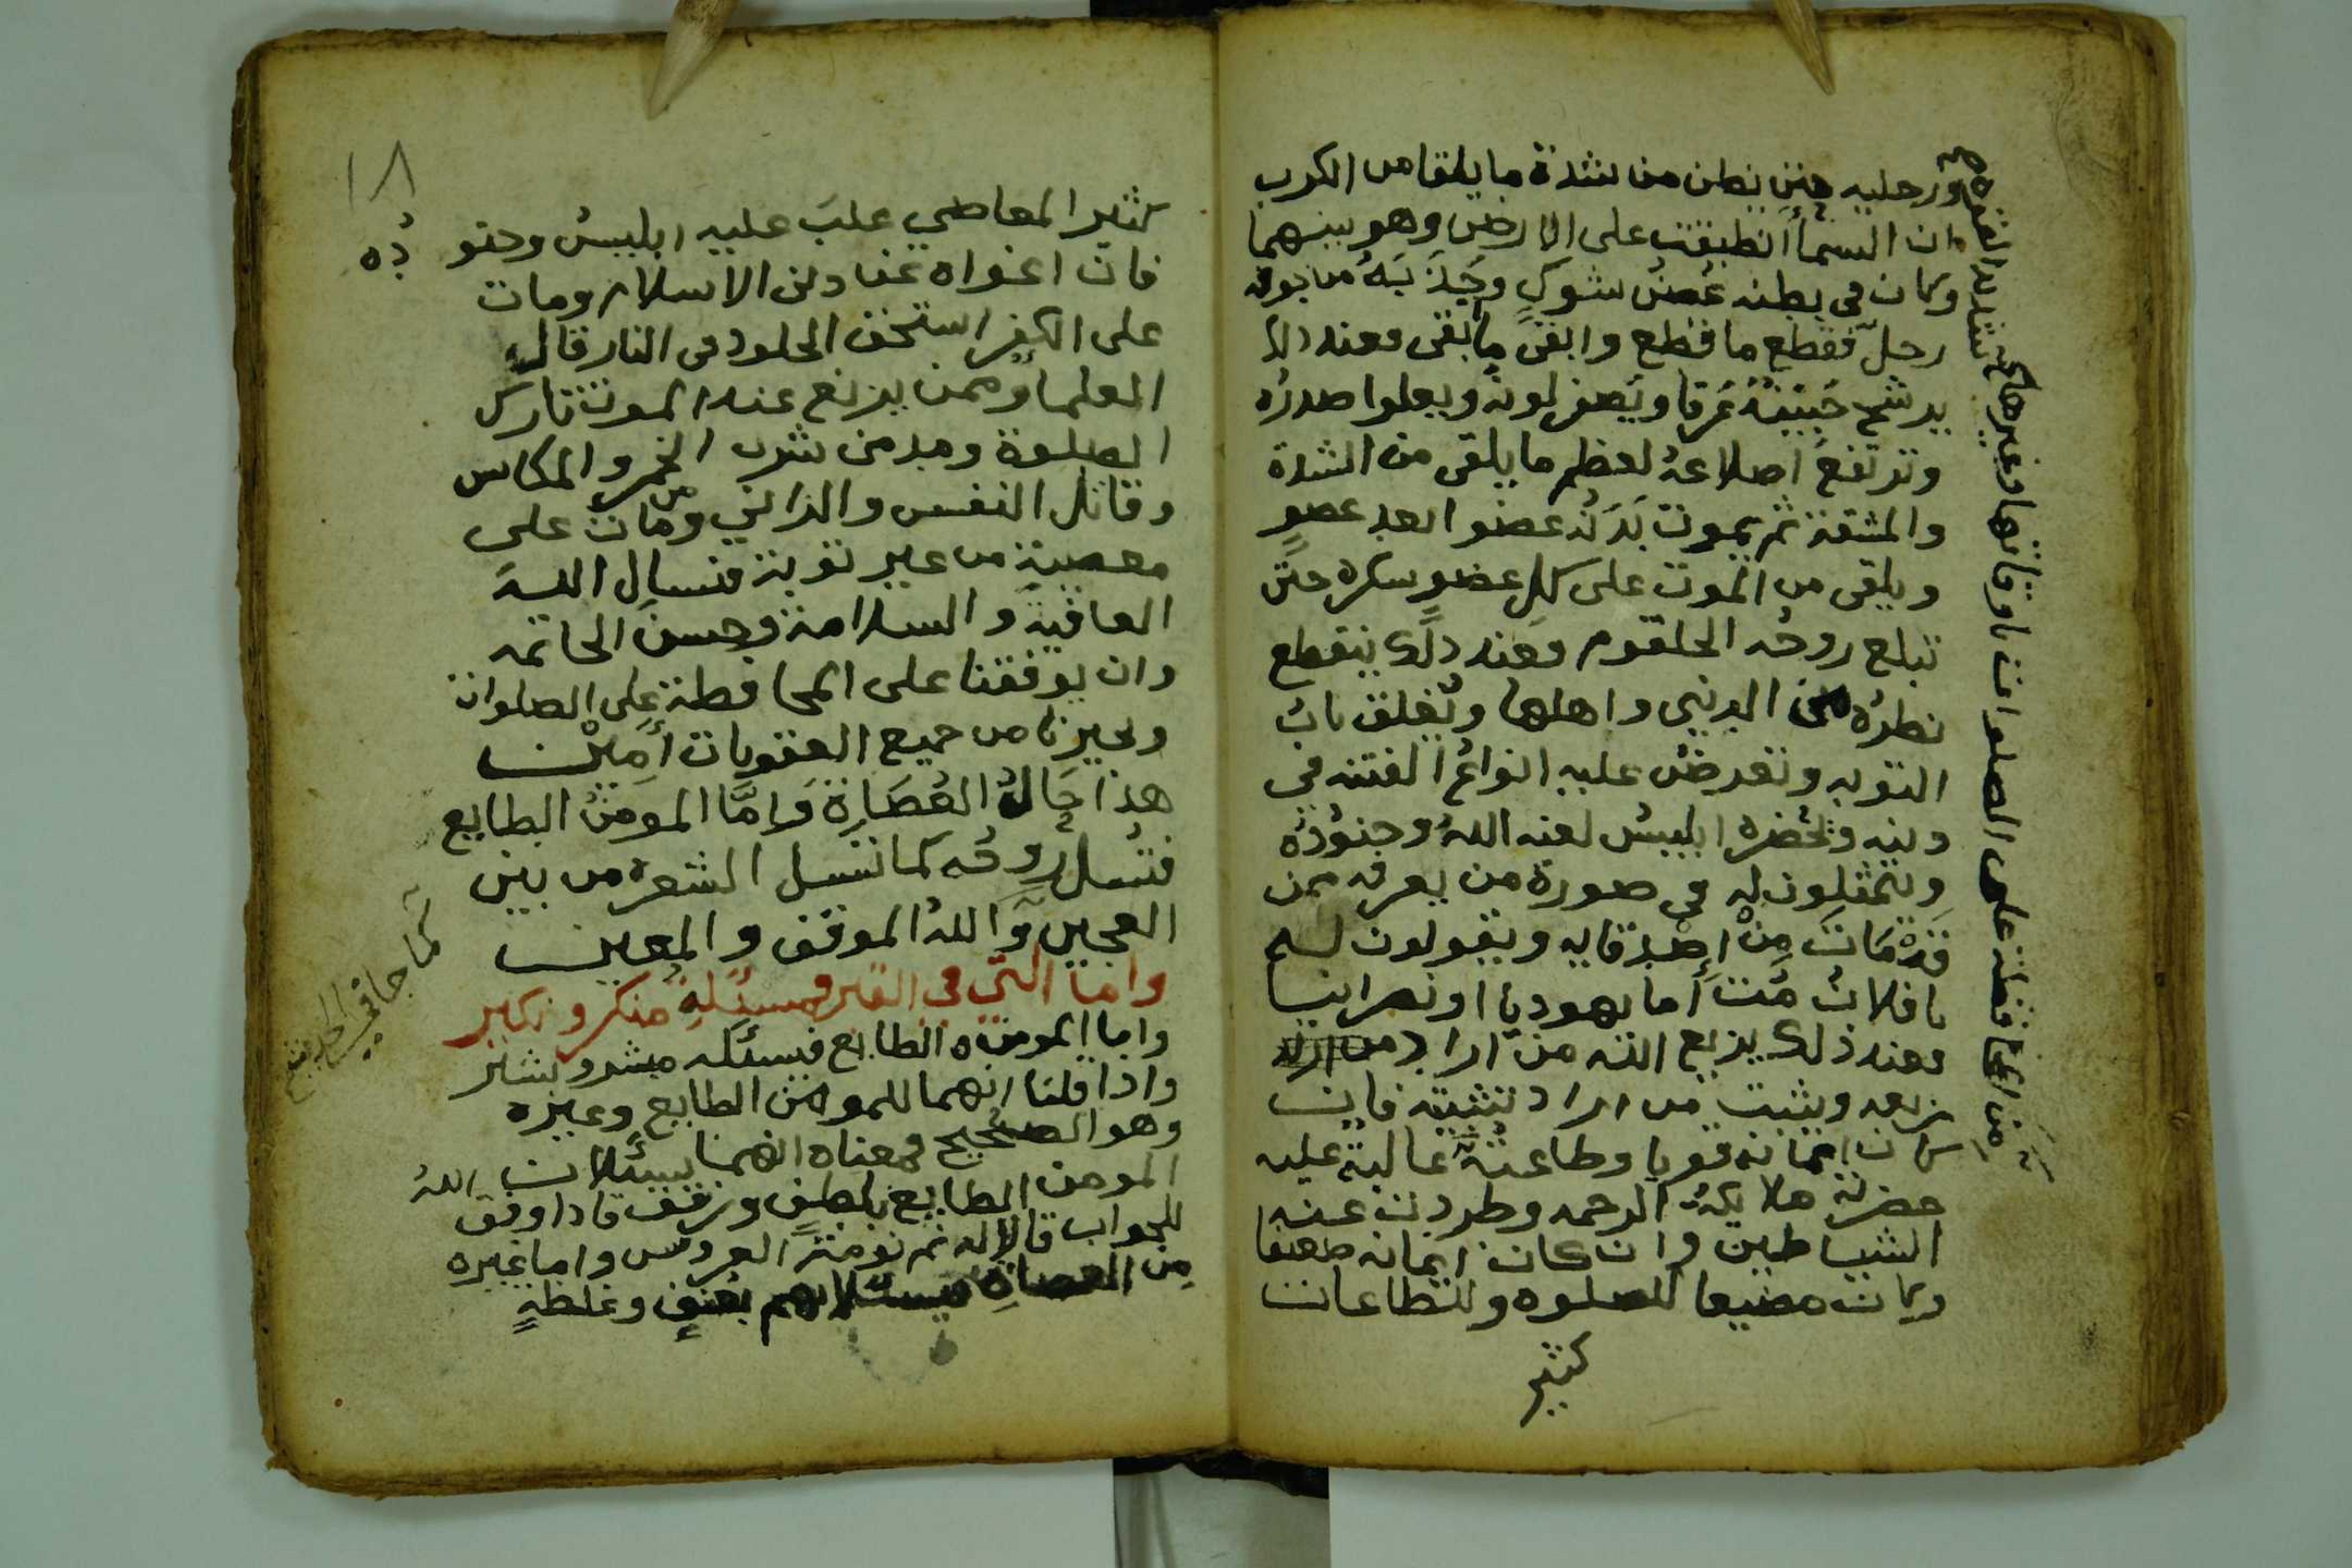 ورجليه حتى يظن من شدة ما يلقا من الكرب
ان السما أنطبقت على الارض وهو بينهما
وكان في بطنه غصن شوكٍ وجَذبَهُ من جوفه
رجلٌ فقطع ما قطع وابقى ما بقى فعند
يرشح جَبينهُ عَرقا ويَصفر لونه ويعلوا صدرُه
وترتفع اضلاعهُ لعظم ما يلقى من الشدة
والمشقة ثم يموت بَدَنهُ عضوا بعد عضوٍ
ويلقى من الموت على كلِ عضوٍ سكره حتى
تبلغ روحُه الحلقوم فعند ذلك ينقطع
نظرُه عن الدنيى واهلها ويُغلق بابُ
التوبه وتعرضُ عليه انواعُ الفتنه في
دينه وتحُضره ابليسُ لعنه اللهُ وجنوُدهُ
ويتمثلون له في صورة من يعرفه ممن
قدْ مَاتَ مِنْ اصْدقايه ويقولون له
يا فلانُ مُتَ أما يهوديا او نصرانيا
فعند ذلك يزيع الله من اراد
زيعه ويثبت من اراد تثبيته فان
كان ايمانه قويا وطاعتُهُ غالبةٌ عليه
حضرته ملايكةُ الرحمه وطردت عنه
الشياطين وان كان ايمانه ضعيفا
وكان مضيعا للصلوه وللطاعات
كثير
من المحافظة على الصلوات اوقاتها وغيرها
١٨
كثير المعاصي غلبَ عليه ابليسُ وجنو
دُه
فان اغواه عن دين الاسلام ومات
على الكفر استحق الخلود في النار قال
العلما وممن يزيع عند الموت تارك
الصلوة ومدمن شرب الخمر والمكاس
وقاتل النفس والزاني ومن مات على
معصيةٍ من غير توبة فنسال الله
العافيةَ والسلامة وحسنَ الخاتمه
وان يوفقنا على المحافظة على الصلوات
ويجيرنا من جميع العقوبات أمِيْن
هذا حَالُ العُصَاةِ وَامَّا المومنُ الطايع
فتسُل روحُه كما تنسل الشعره من بين
العجين وَاللهُ الموفق والمعين
واما التي في القبر فمسئلةِ منكر ونكير
واما المومن الطايع فيسئله مبشر وبشير
واذا قلنا انهما للمومن الطايع وغيره
وهو الصحيح فمعناه انهما يسئلان
المومن الطايع بلطفٍ ورفق فاذا وفق اللهُ
للجواب قالا له نم نومة العروس واما غيره
مِن العصاةِ فيسئلانهم بعُنفٍ وغلظةٍ
كما جا في الحديث